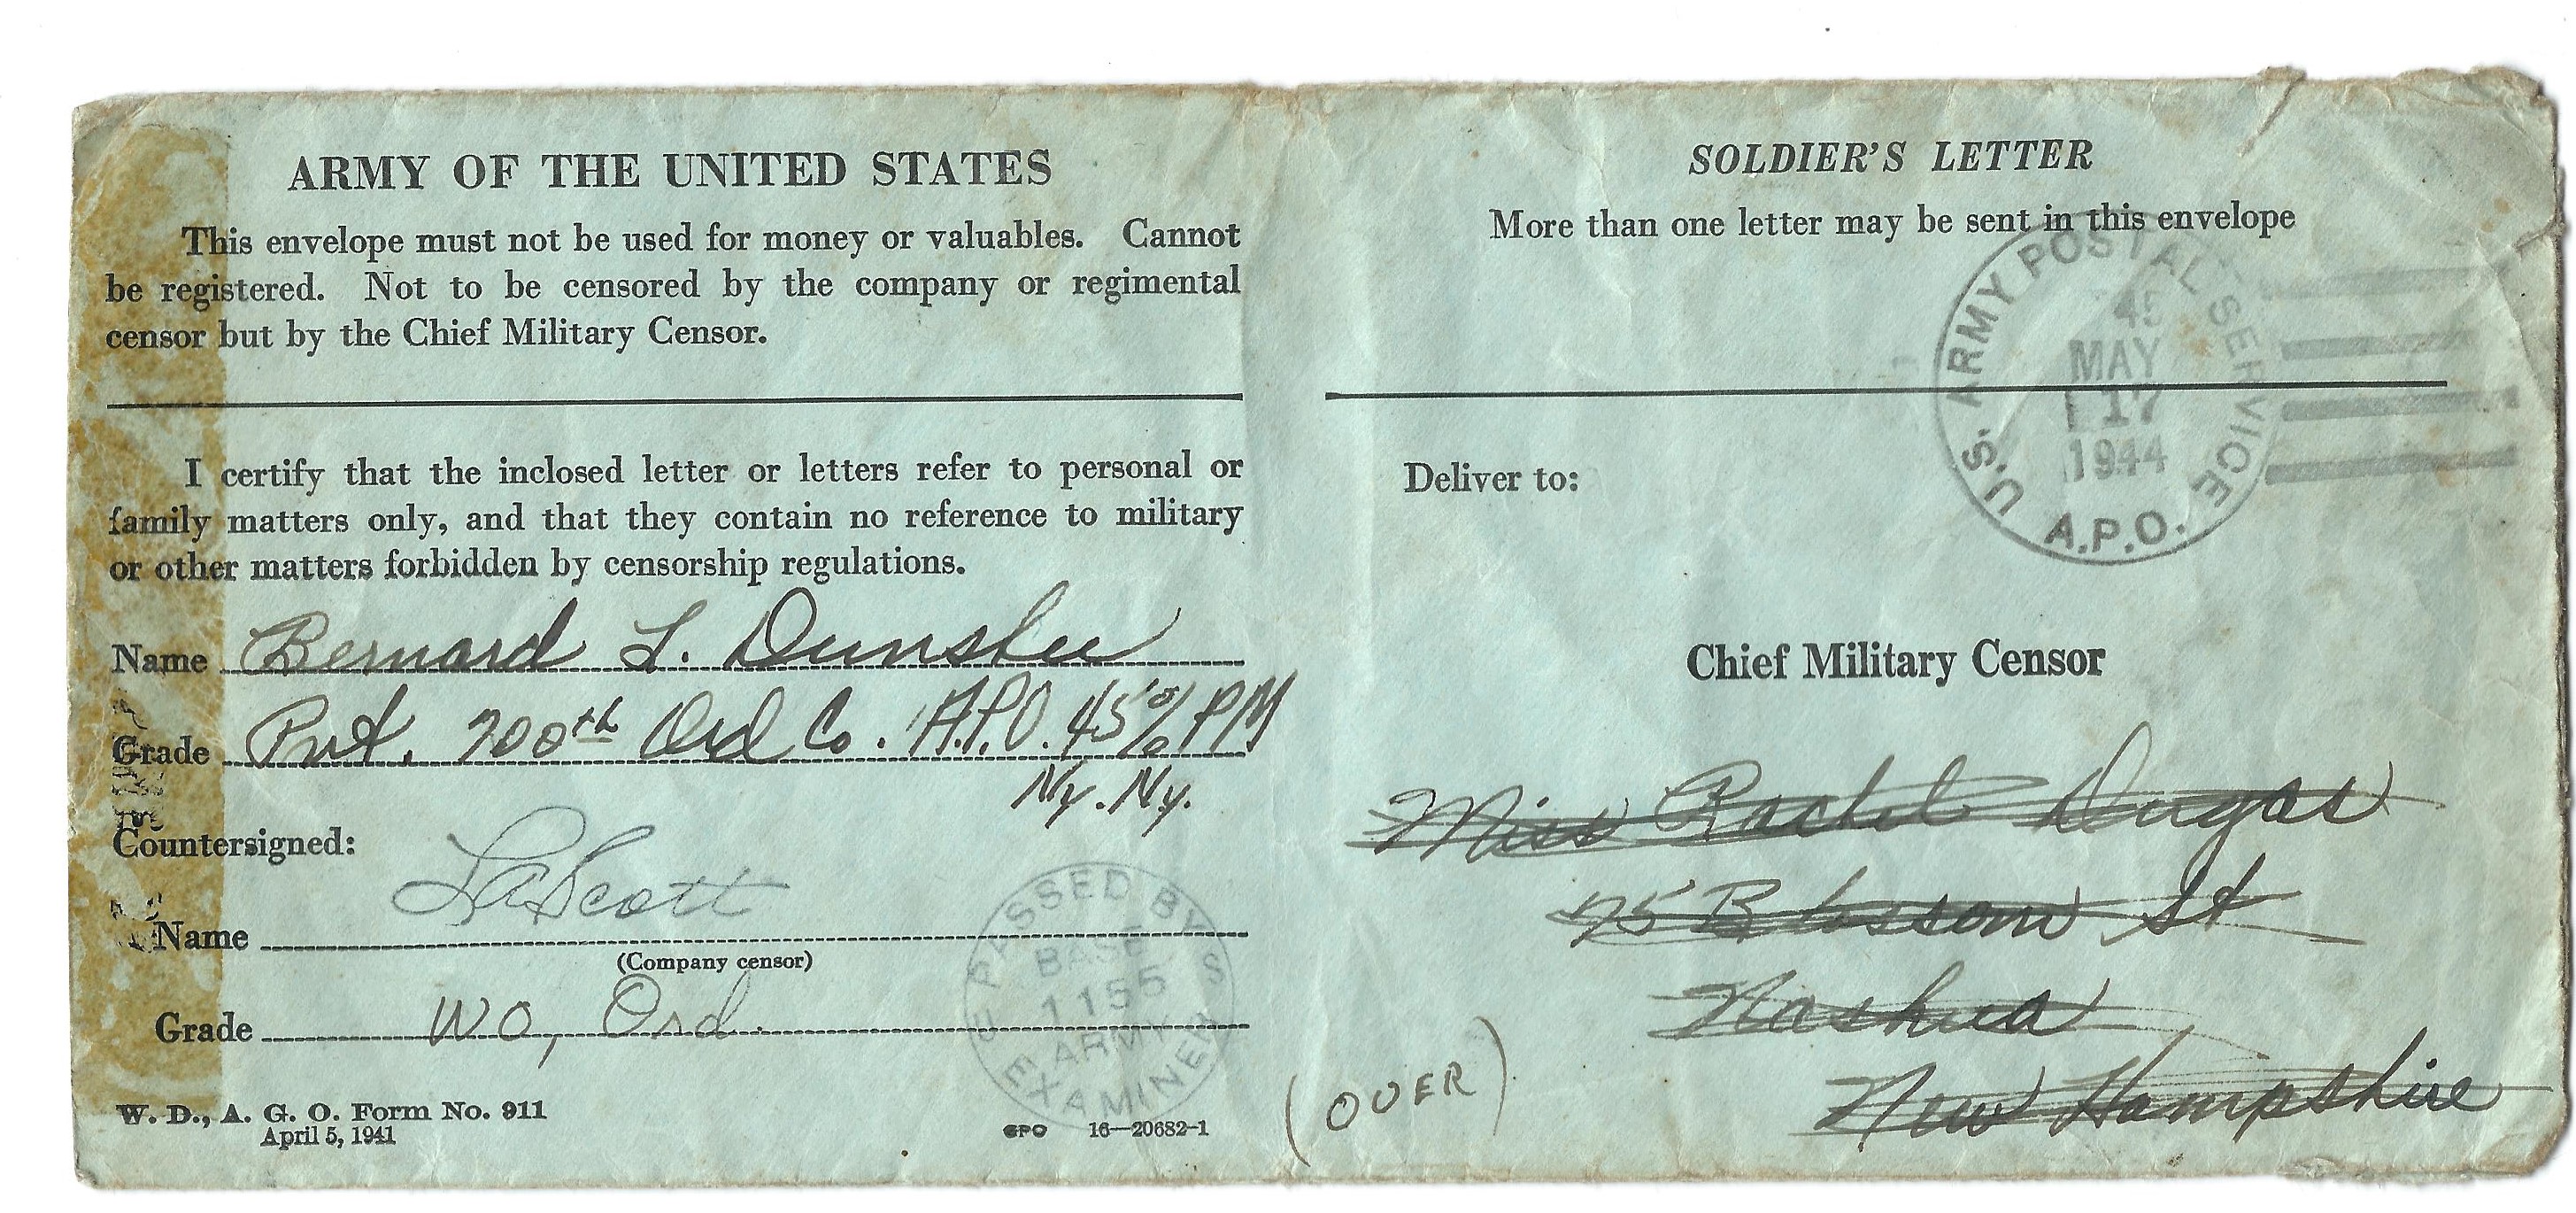 ARMY OF THE UNITED STATES
This envelope must not be used for money or valuables. Cannot
be registered. Not to be censored by the company or regimental
censor but by the Chief Military Censor.
I certify that the inclosed letter or letters refer to personal or
family matters only, and that they contain no reference to military
or other matters forbidden by censorship regulations.
Name Bernard L. Dunshee
Grade Pvt. 700th Ord Co. A.P.O. 45 % PM
Ny. Ny.
Countersigned:
Name LaScott
(Company censor)
Grade WO, Ord.
PASSED BY
BASE
1155
ARMY
EXAMINER
W. D., A. G. O. Form No. 911
April 5, 1941
GPO 16—20682-1
SOLDIER'S LETTER
More than one letter may be sent in this envelope
U.S. ARMY POSTAL SERVICE
MAY
17
1944
A.P.O.
Deliver to:
Chief Military Censor
Miss Rachel Dugas
75 Blossom St
Nashua
New Hampshire
(OVER)